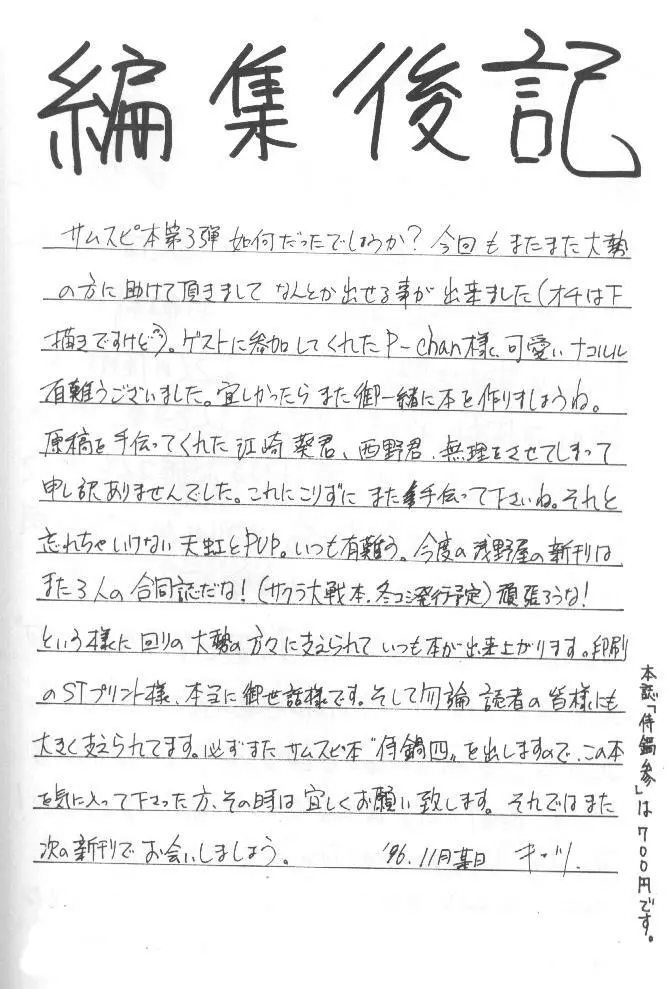 編集後記
サムスピ本第3弾 如何だったでしょうか？今回もまたまた大勢
の方に助けて頂きまして なんとか出せる事が出来ました(オチは下
描きですけど)。ゲストに参加してくれたP-chan様、可愛いナコルル
有難うございました。宜しかったらまた御一緒に本を作りましょうね。
原稿を手伝ってくれた江崎葵君、西野君、無理をさせてしまって
申し訳ありませんでした。これにこりずに また手伝って下さいね。それと
忘れちゃいけない 天虹とPUP。いつも有難う。今度の浅野屋の新刊は
また3人の合同誌だな！(サクラ大戦本.冬コミ発行予定)頑張ろうな！
という様に 回りの大勢の方々に支えられて いつも本が出来上がります。印刷
のSTプリント様、本当に御世話様です。そして勿論 読者の皆様にも
大きく支えられてます。必ずまた サムスピ本〝侍鍋四〟を出しますので、この本
を気に入って下さった方、その時は宜しくお願い致します。それではまた
次の新刊でお会いしましょう。 '96.11月某日 キッツ.
本誌「侍鍋参」は700円です。